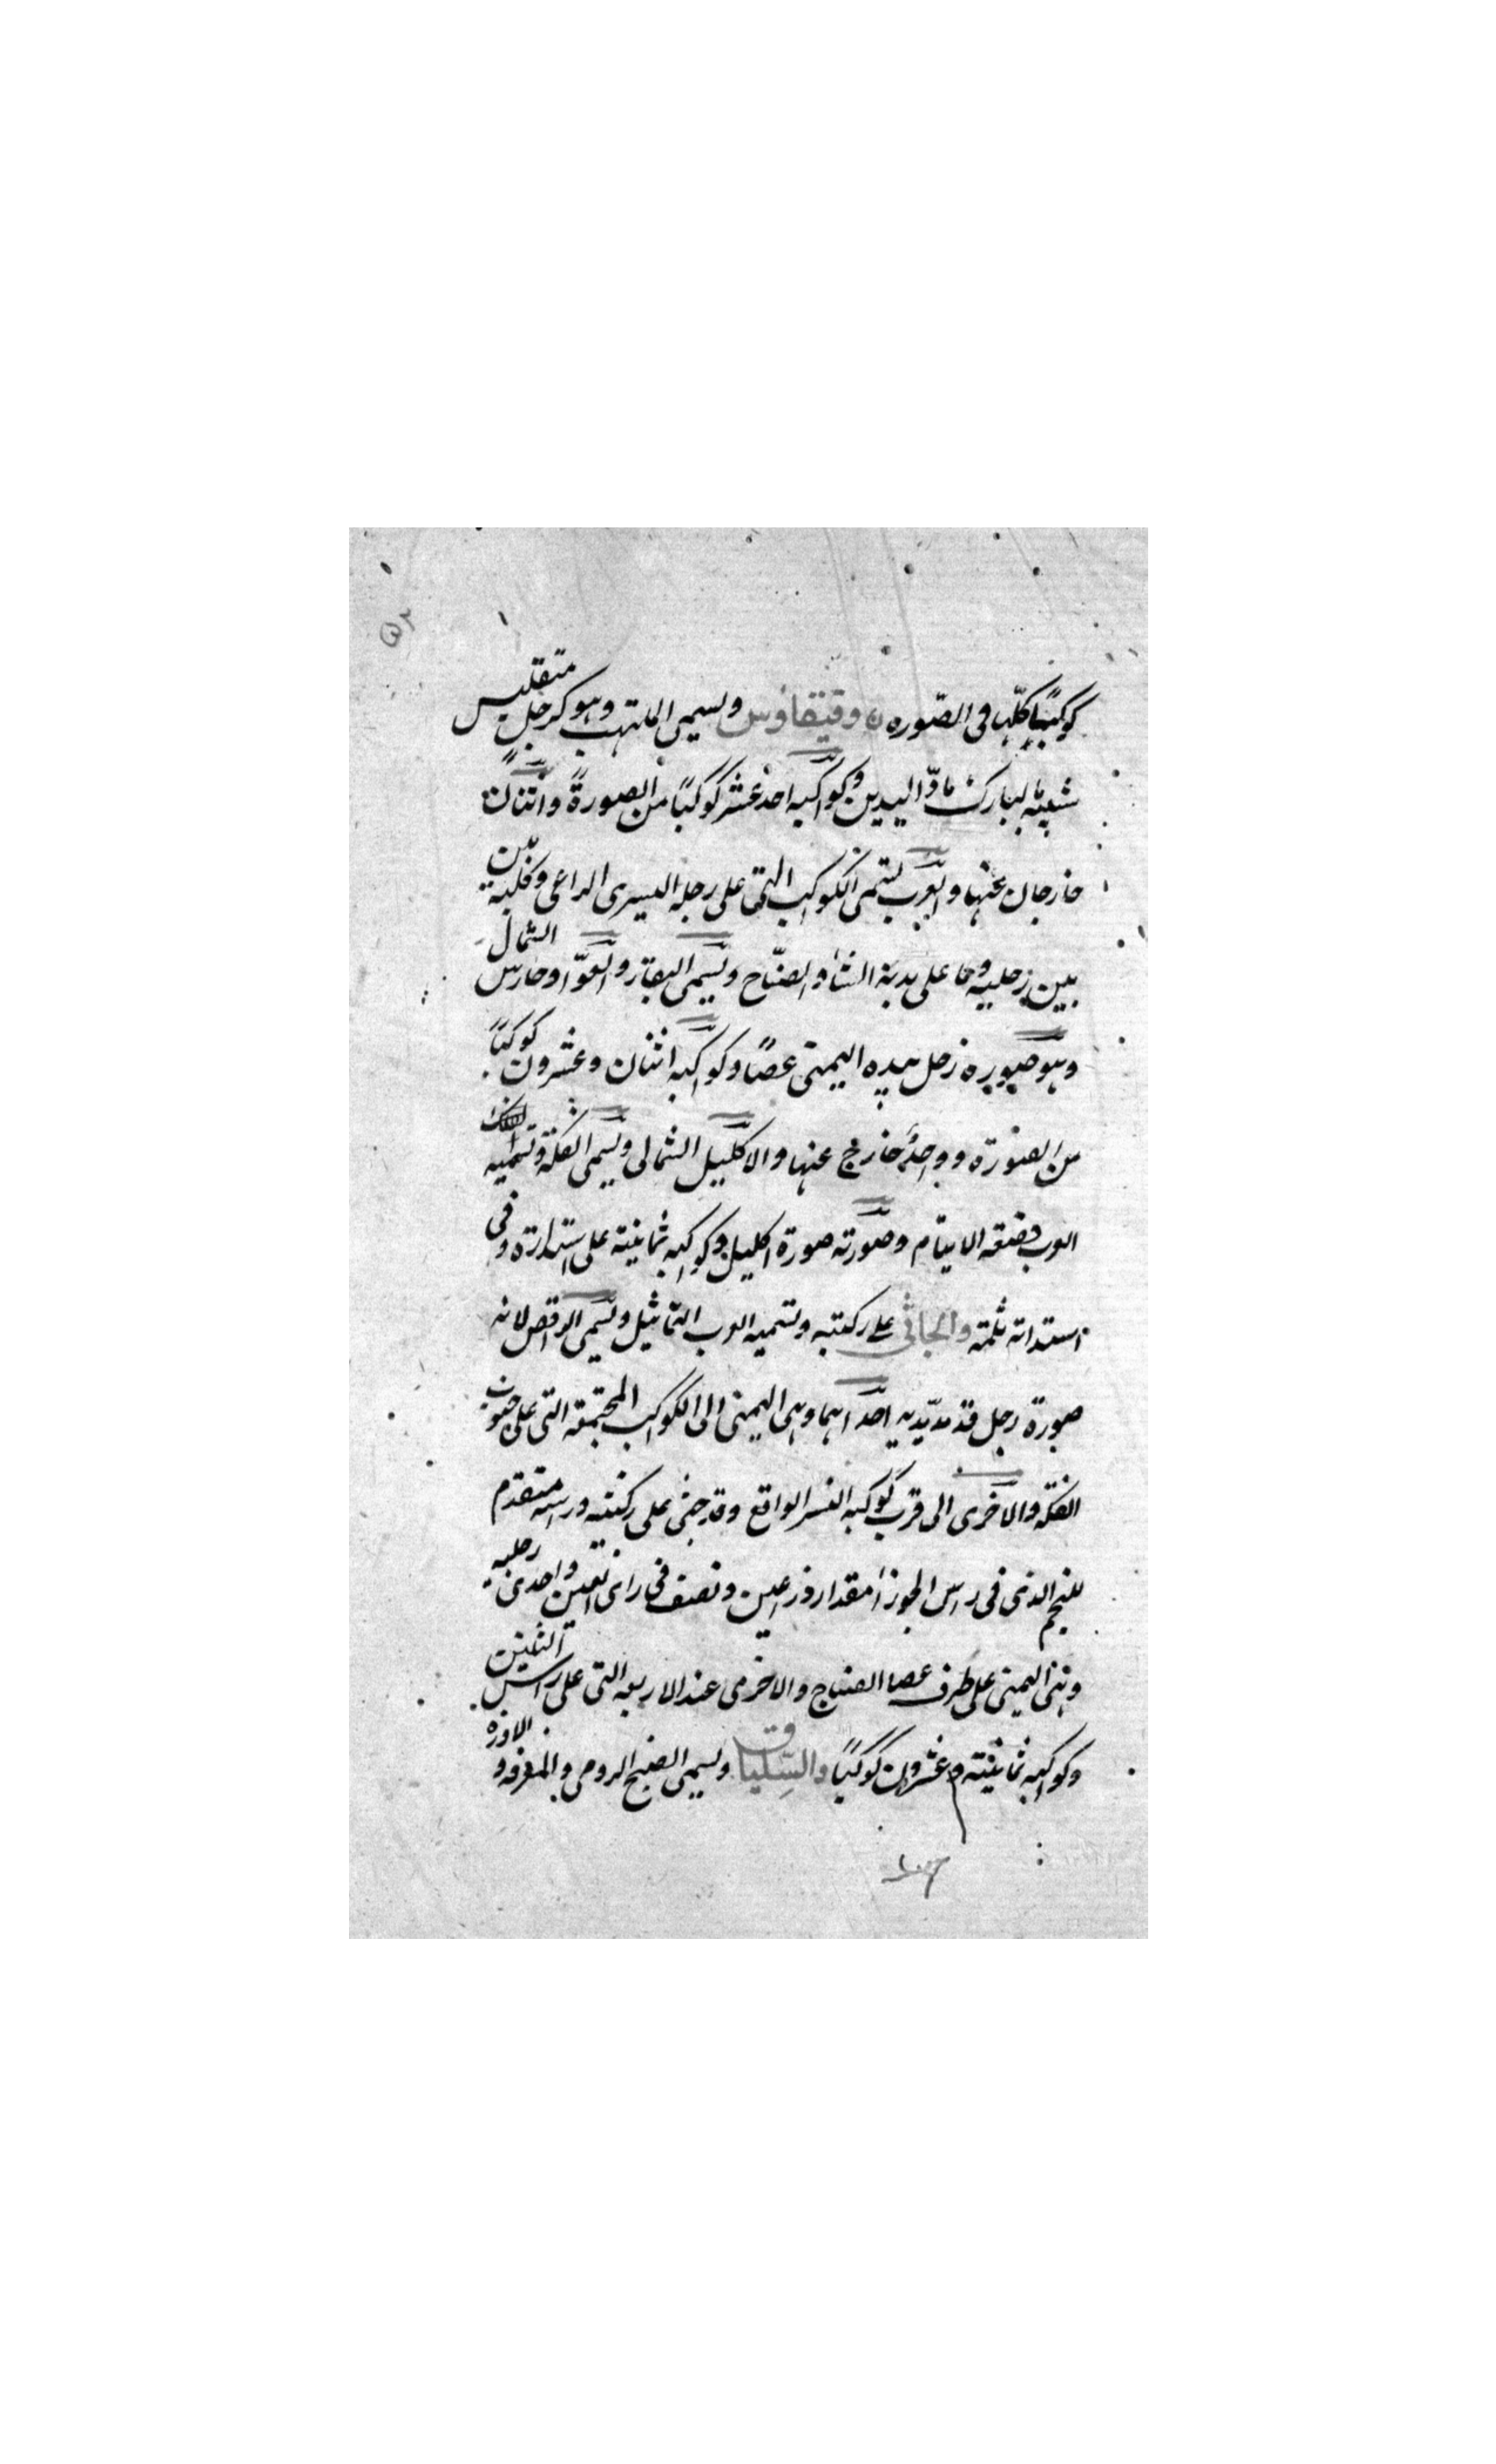 كوكبًا كلّها فى الصّوره وقيقاوس ويسمى الملتهب وهو كرجل متقلس
شبيه بالبارك مادّ اليدين وكواكبه احد عشر كوكبًا من الصورة واثنان
خارجان عنها والعرب تسمى الكواكب التى على رجله اليسرى الراعى وكلبه بين
بين رجليه وما على بدنه الشاء والصّياح ويسمى البقار والعوّا وحارس الشمال
وهو صوره رجل بيده اليمنى عصًا وكواكبه اثنان وعشرون كوكبًا
من الصورة وواحدٌ خارج عنها والاكليل الشمالى ويسمى الفكة وتسميه
العرب قصعه الايتام وصورته صورة اكليل وكواكبه ثمانية على استدارة وفى
استدارته ثلمة والجاثى على ركبتيه وتسميه العرب التماثيل ويسمى الراقص لانه
صورة رجل قد مدّ يديه احداهما وهى اليمنى الى الكواكب المجتمعة التى على جنوب
الفكه والاخرى الى قرب كوكبه النسر الواقع وقد جثى على ركبتيه وراسه متقدم
للنجم الذى فى راس الجوزا مقدار ذراعين ونصف فى راى العين واحدى رجليه
وهى اليمنى على طرف عصا الصياح والاخرى عند الاربعه التى على راس التنين
وكواكبه ثمانية وعشرون كوكبًا والسّلياق ويسمى الصنج الرومى والمعرفه و الاوزه